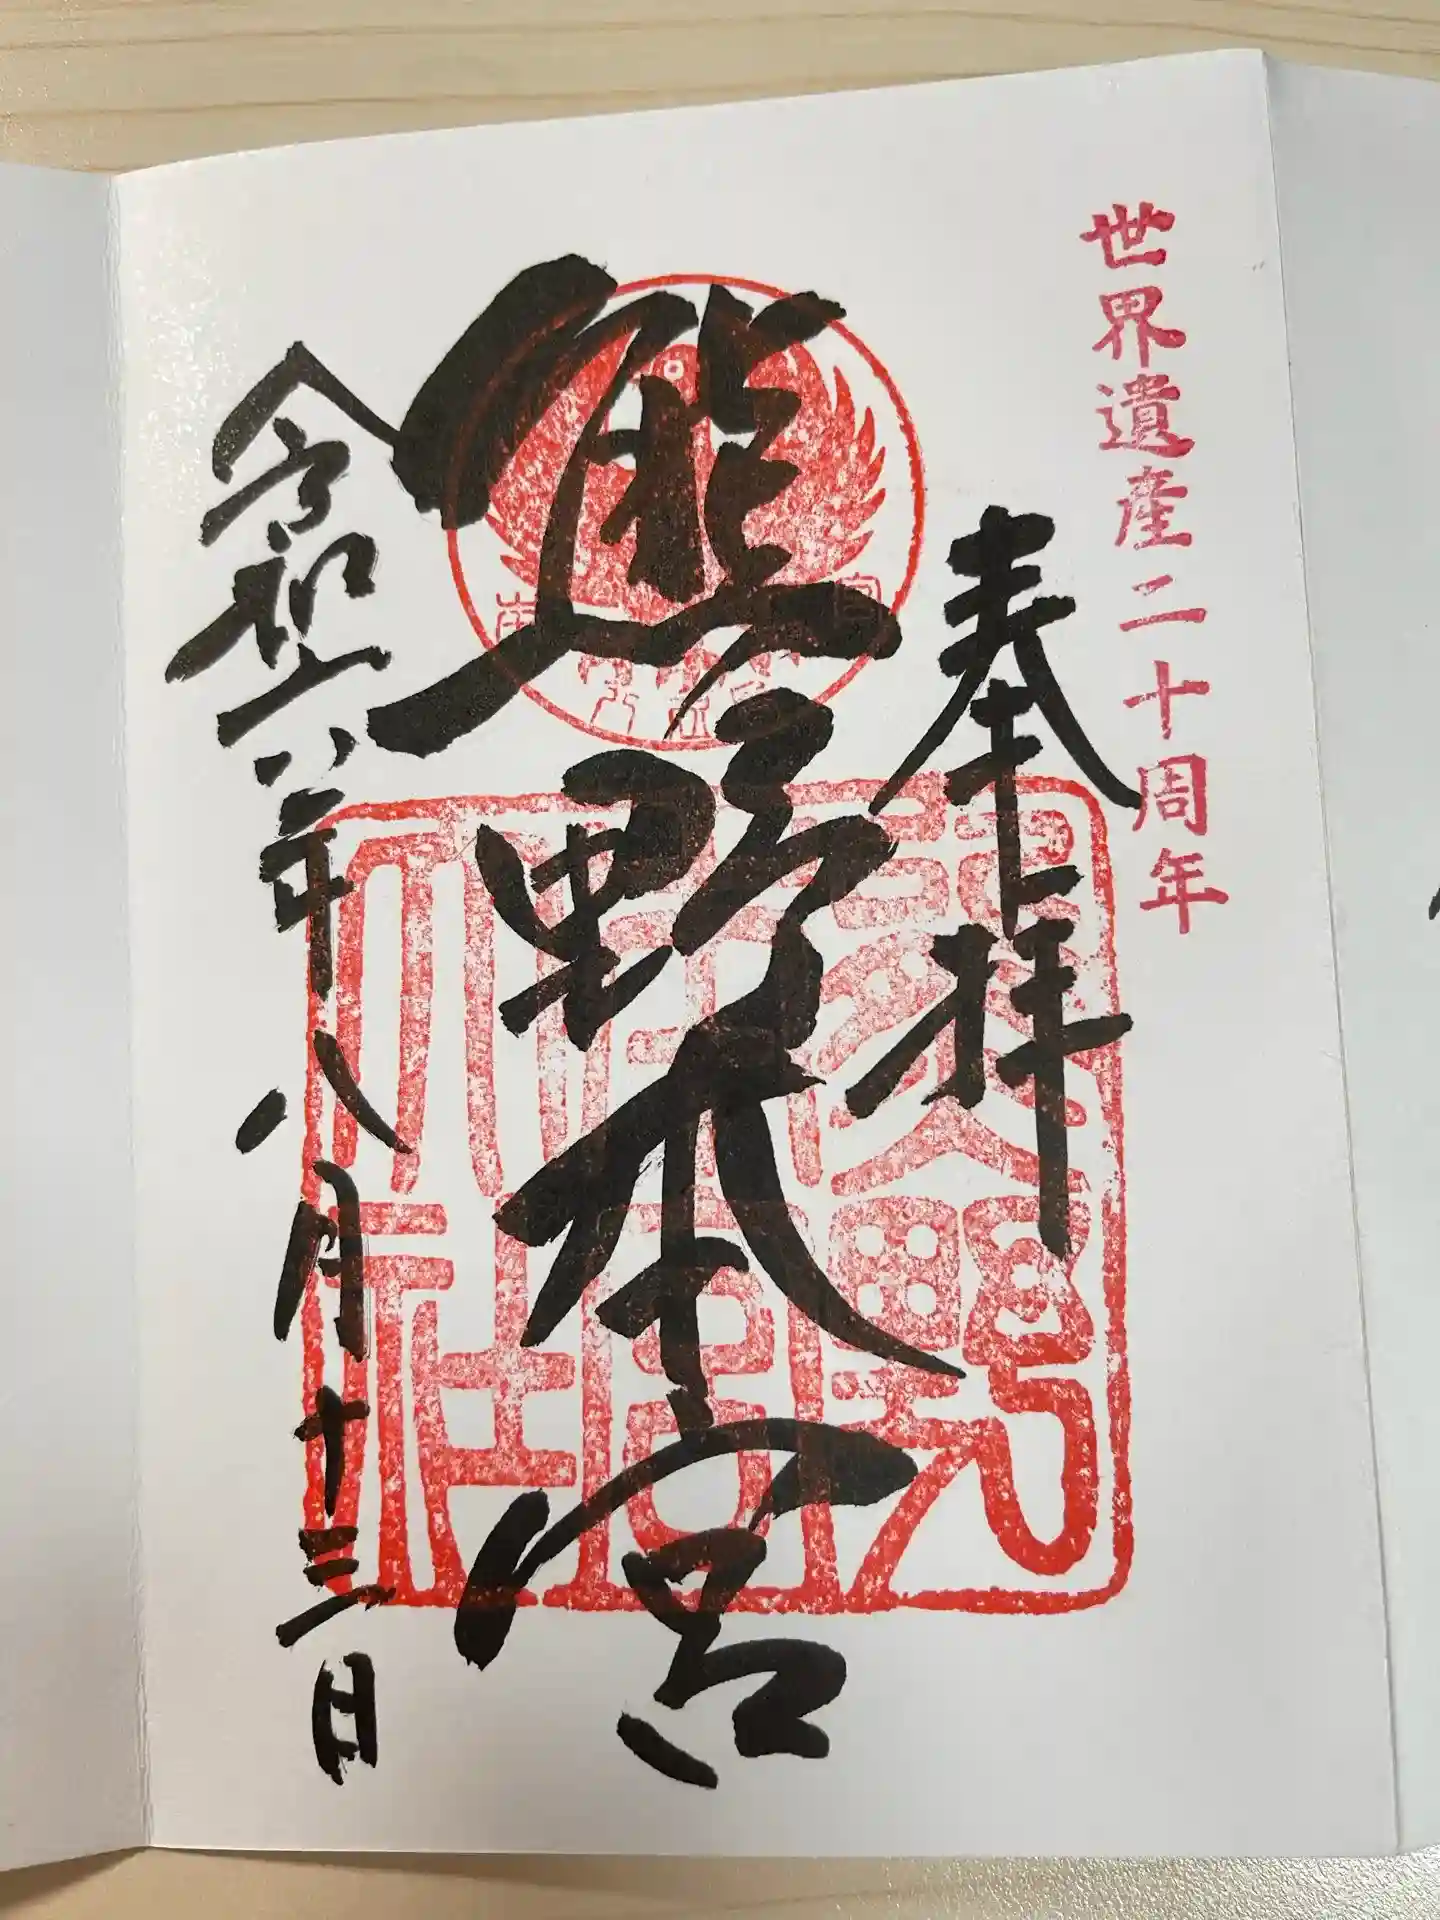 世界遺産二十周年
奉拝
熊野本宮
令和六年八月十三日
熊野
本宮
大社